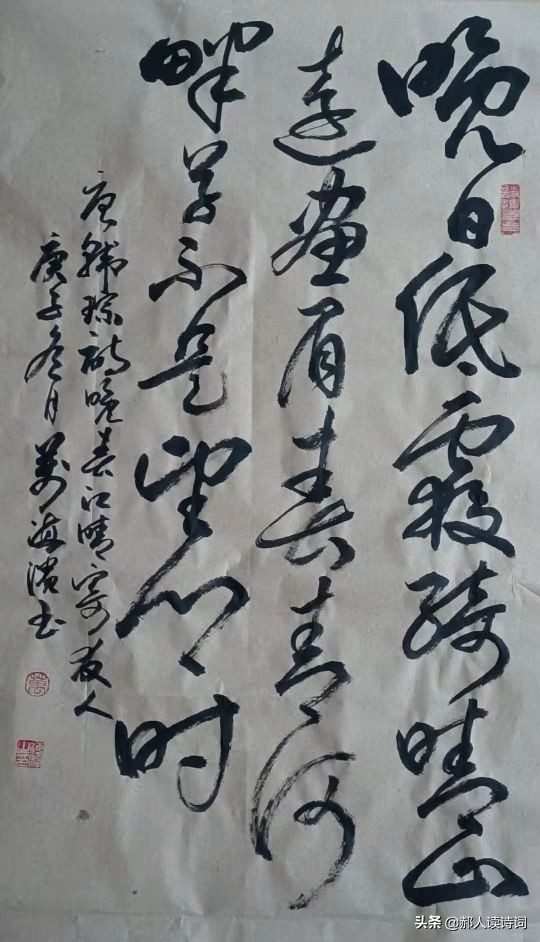 晚日低霞绮晴山
遠畫眉春青河
畔草不是望乡时
唐韩琮诗晚春江晴寄友人
庚子冬月萬海滨书
头条 @郝人读诗词